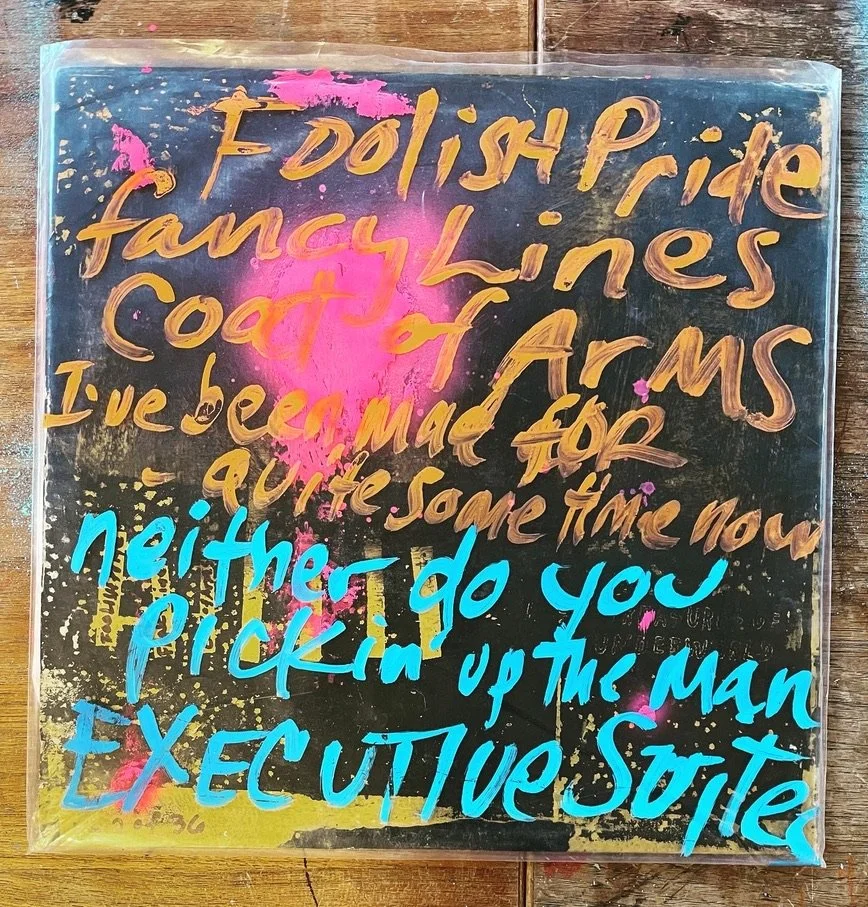 Foolish Pride
fancy Lines
Coat of Arms
I've been mad for
- quite some time now
neither do you
pickin up the man
EXECUTIVE Suites